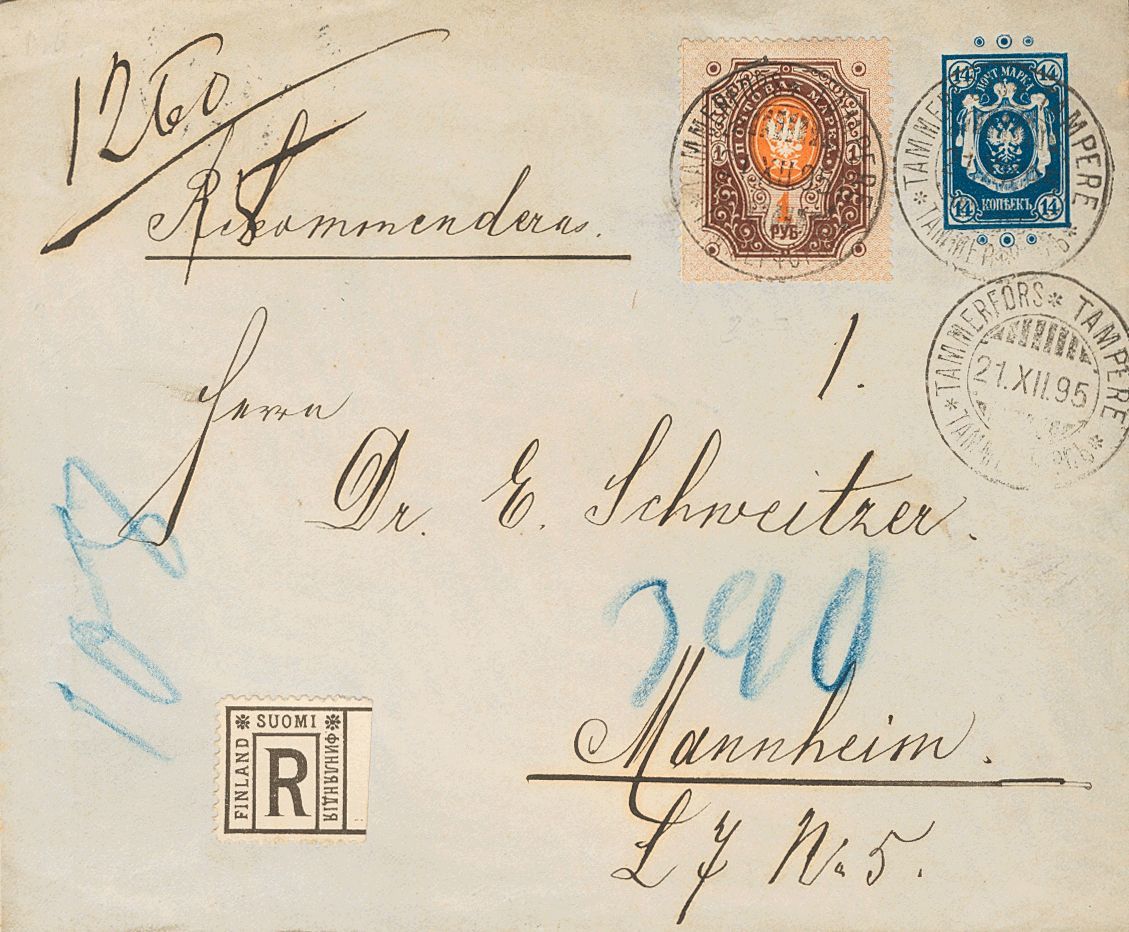 1260
Rekommenderas.
14 ПОЧТ. МАРКА 14
14 КОПѢЕКЪ 14
ПОЧТОВАЯ МАРКА
1 1
1
РУБ.
TAMMERFORS * TAMPERE
21.XII.95
1.
Herrn
Dr. E. Schweitzer.
390
Mannheim.
L 7 No 5.
FINLAND * SUOMI * ФИНЛЯНДІЯ
R